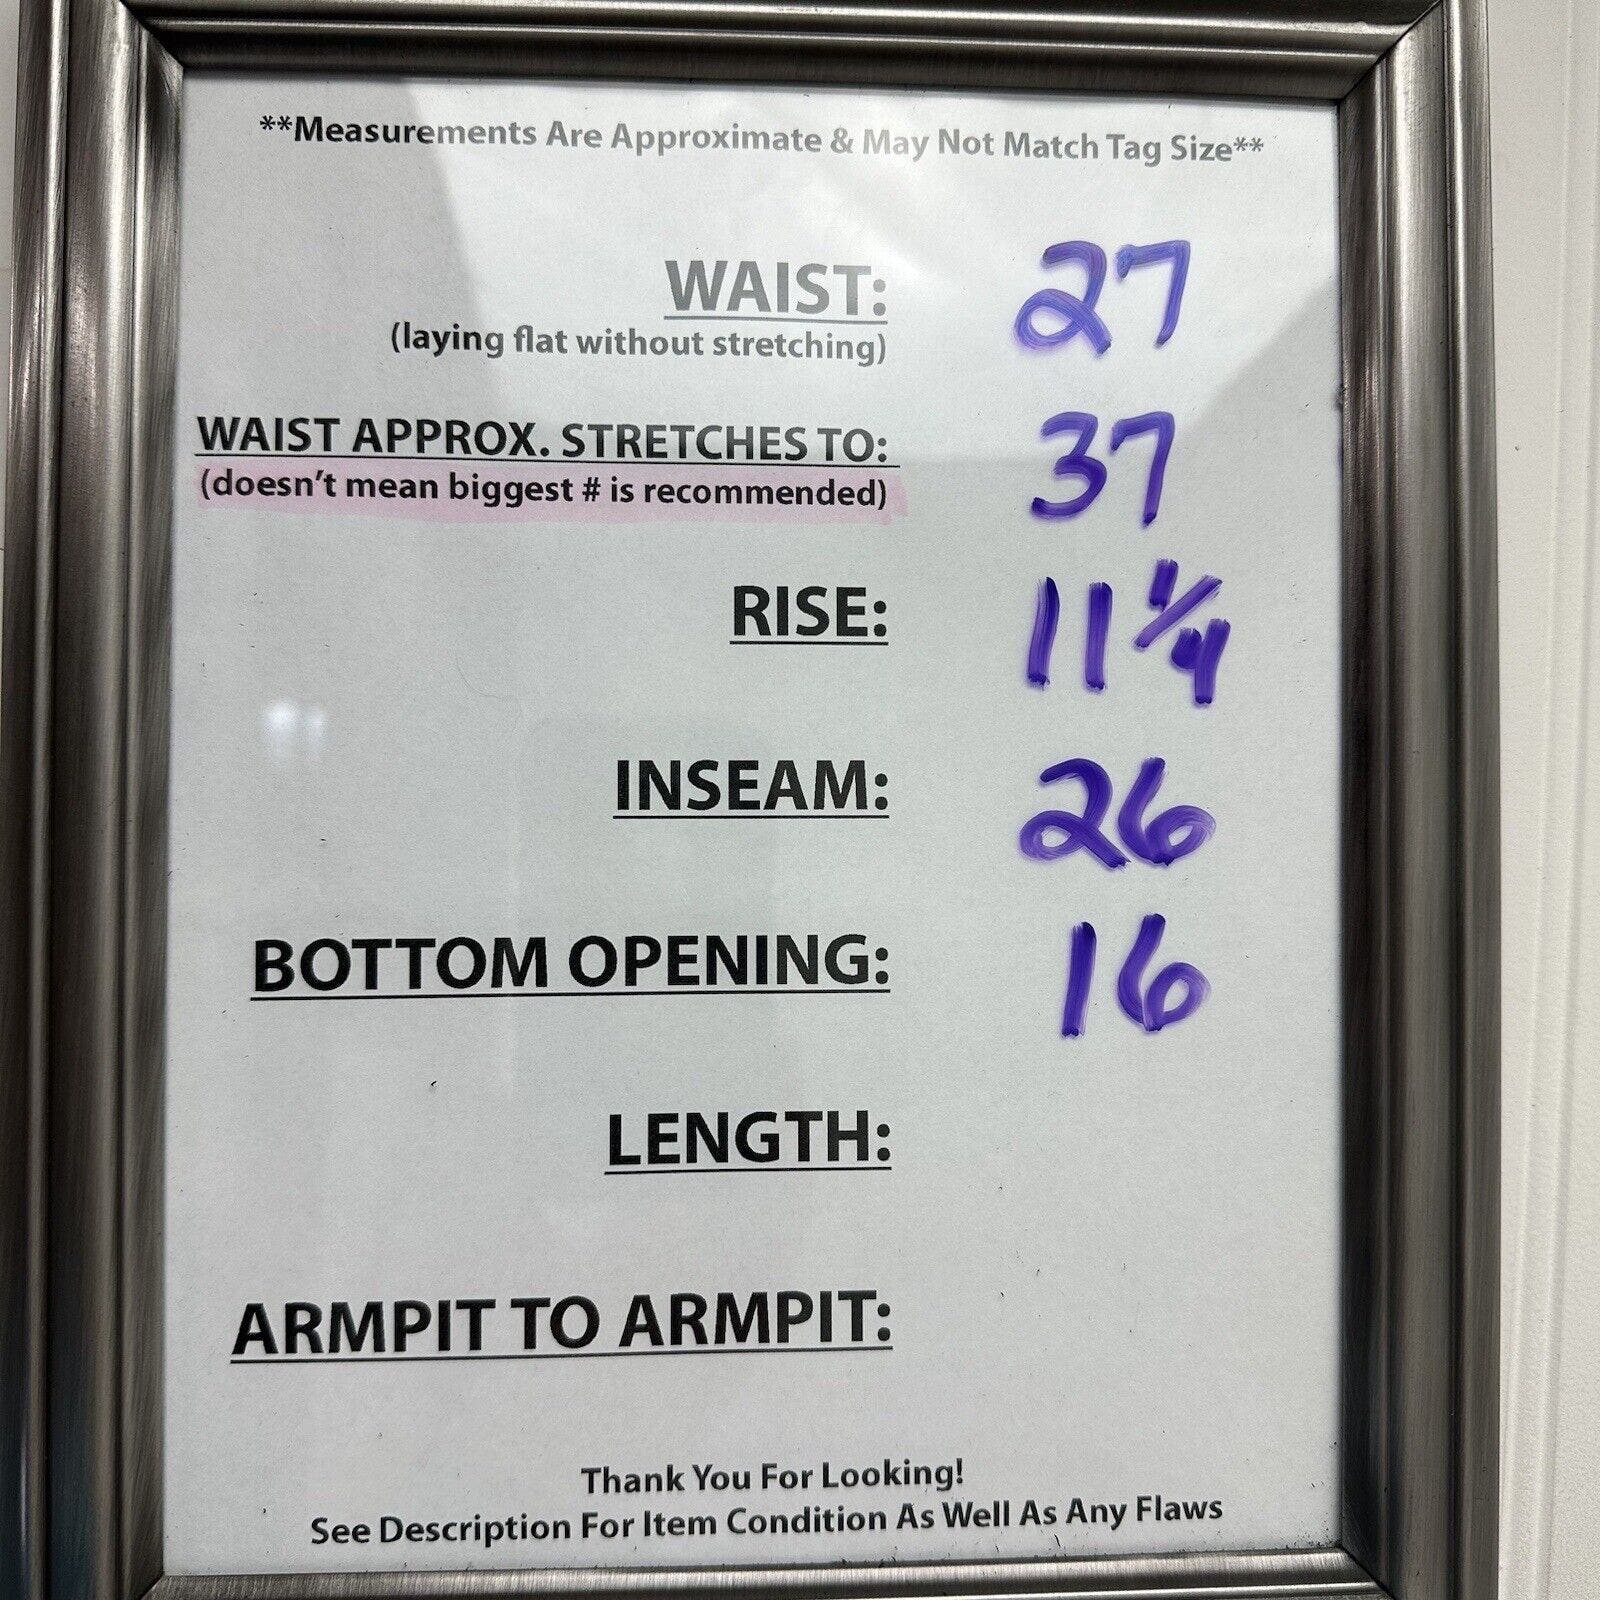 **Measurements Are Approximate & May Not Match Tag Size**
WAIST: 27
(laying flat without stretching)
WAIST APPROX. STRETCHES TO: 37
(doesn't mean biggest # is recommended)
RISE: 11 1/4
INSEAM: 26
BOTTOM OPENING: 16
LENGTH:
ARMPIT TO ARMPIT:
Thank You For Looking!
See Description For Item Condition As Well As Any Flaws